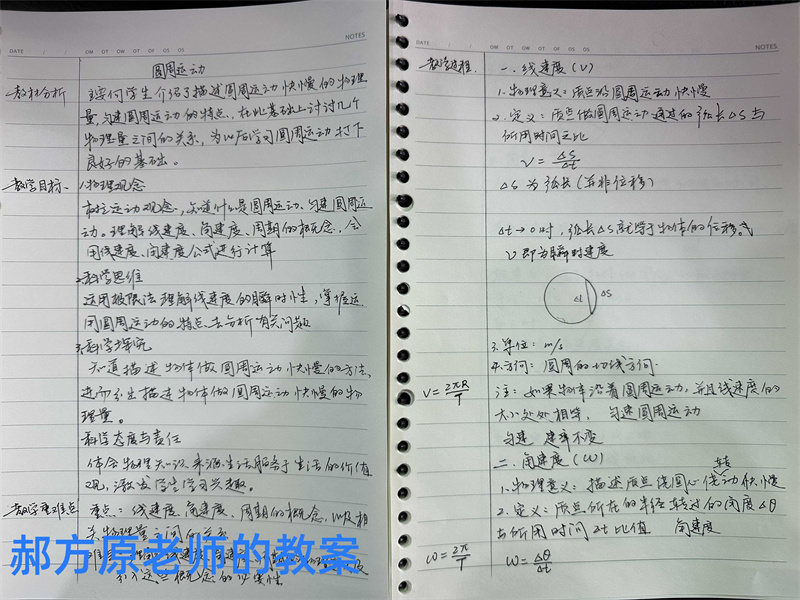 NOTES
DATE / / OM OT OW OT OF OS OS
圆周运动
教材分析 主要向学生介绍了描述圆周运动快慢的物理
量,匀速圆周运动的特点、在此基础上讨论几个
物理量之间的关系,为以后学习圆周运动打下
良好的基础。
教学目标. 1.物理观念
树立运动观念,知道什么是圆周运动、匀速圆周运
动。理解线速度、角速度、周期的概念,会
用线速度、角速度公式进行计算
2.科学思维
运用极限法理解线速度的瞬时性,掌握运
用圆周运动的特点去分析有关问题
3.科学探究
知道描述物体做圆周运动快慢的方法,
进而引出描述物体做圆周运动快慢的物
理量。
科学态度与责任
体会物理知识来源生活服务于生活的价值
观,激发学生学习兴趣。
教学重难点 重点:线速度、角速度、周期的概念,以及相
关物理量之间的关系
引入这些概念的必要性
郝方原老师的教案
NOTES
DATE / / OM OT OW OT OF OS OS
教学过程. 一.线速度(V)
1.物理意义:质点沿圆周运动快慢
2.定义:质点做圆周运动通过的弧长ΔS与
所用时间之比
V = ΔS/Δt
ΔS为弧长(并非位移)
Δt→0时,弧长ΔS就等于物体的位移
V即为瞬时速度
Δl ΔS
3.单位:m/s
4.方向:圆周的切线方向.
V = 2πR/T 注:如果物体沿着圆周运动,并且线速度的
大小处处相等, 匀速圆周运动
匀速 速率不变
二.角速度(W)
转
1.物理意义:描述质点绕圆心绕动快慢
2.定义:质点所在的半径转过的角度Δθ
与所用时间Δt比值 角速度
ω = 2π/T W = Δθ/Δt